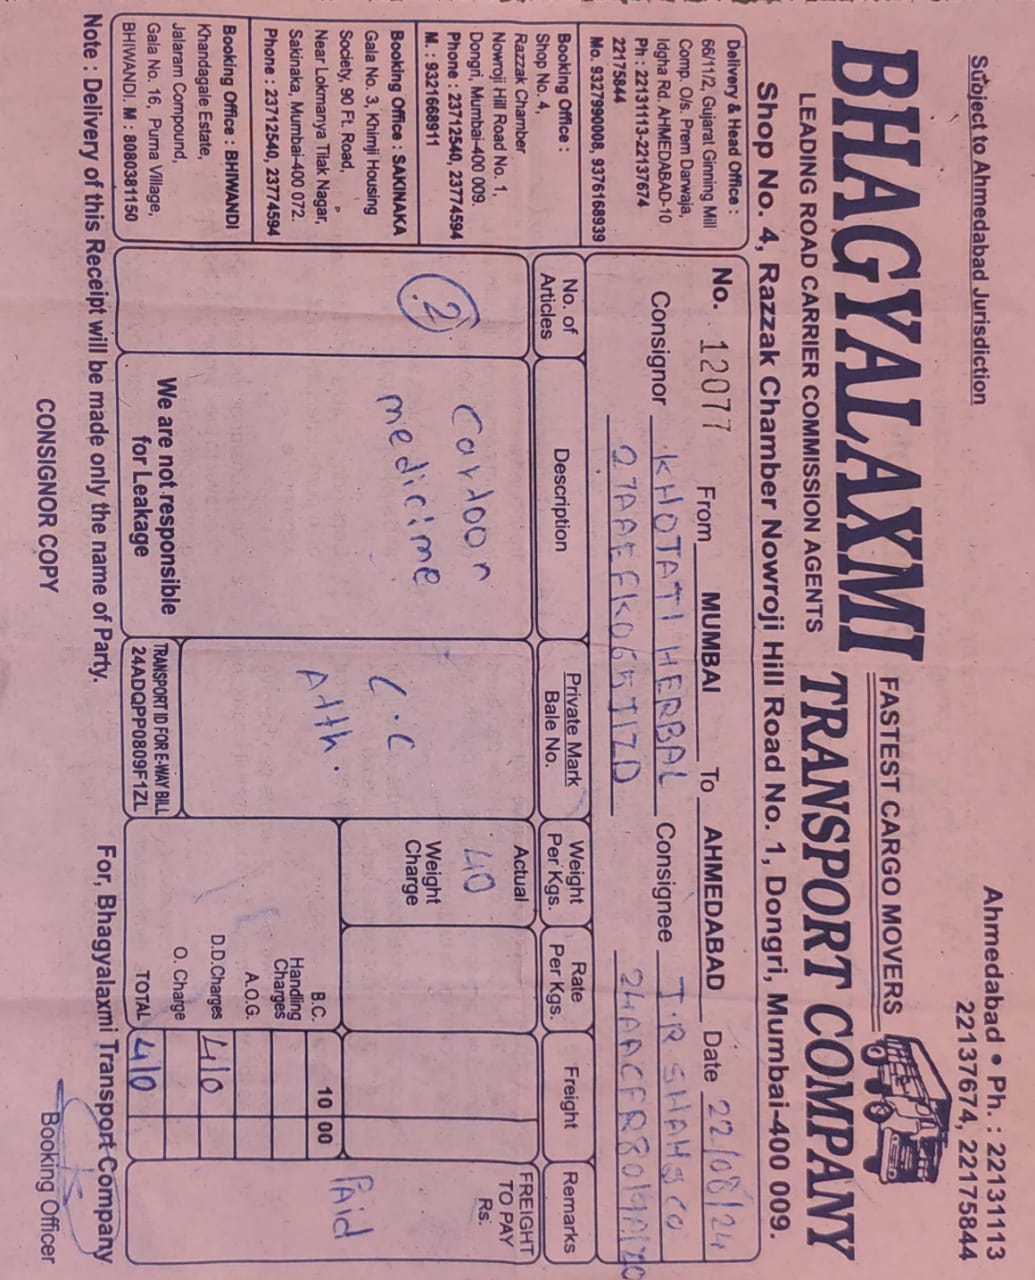 Subject to Ahmedabad Jurisdiction
Ahmedabad • Ph. : 22131113
22137674, 22175844
BHAGYALAXMI TRANSPORT COMPANY
FASTEST CARGO MOVERS
LEADING ROAD CARRIER COMMISSION AGENTS
Shop No. 4, Razzak Chamber Nowroji Hill Road No. 1, Dongri, Mumbai-400 009.
Delivery & Head Office :
66/11/2, Gujarat Ginning Mill
Comp. O/s. Prem Darwaja,
Idgha Rd. AHMEDABAD-10
Ph : 22131113-22137674
22175844
Mo. 9327990008, 9376168939
Booking Office :
Shop No. 4,
Razzak Chamber
Nowroji Hill Road No. 1,
Dongri, Mumbai-400 009.
Phone : 23712540, 23774594
M. : 9321668911
Booking Office : SAKINAKA
Gala No. 3, Khimji Housing
Society, 90 Ft. Road,
Near Lokmanya Tilak Nagar,
Sakinaka, Mumbai-400 072.
Phone : 23712540, 23774594
Booking Office : BHIWANDI
Khandagale Estate,
Jalaram Compound,
Gala No. 16, Purna Village,
BHIWANDI. M : 8080381150
No. 12077 From MUMBAI To AHMEDABAD Date 22/08/24
Consignor KHOTATI HERBAL Consignee T.R SHAH & CO
No. of Articles
Description
Private Mark Bale No.
Weight Per Kgs.
Rate Per Kgs.
Freight
Remarks
2
Cartoon
medicime
C.C
Adth.
Actual
40
Weight Charge
FREIGHT TO PAY Rs.
Paid
B.C. 10 00
Handling Charges
A.O.G.
D.D.Charges 40
O. Charge
TOTAL 40
We are not responsible for Leakage
TRANSPORT ID FOR E-WAY BILL
24ADQPP0809F1ZL
Note : Delivery of this Receipt will be made only the name of Party.
For, Bhagyalaxmi Transport Company
CONSIGNOR COPY
Booking Officer